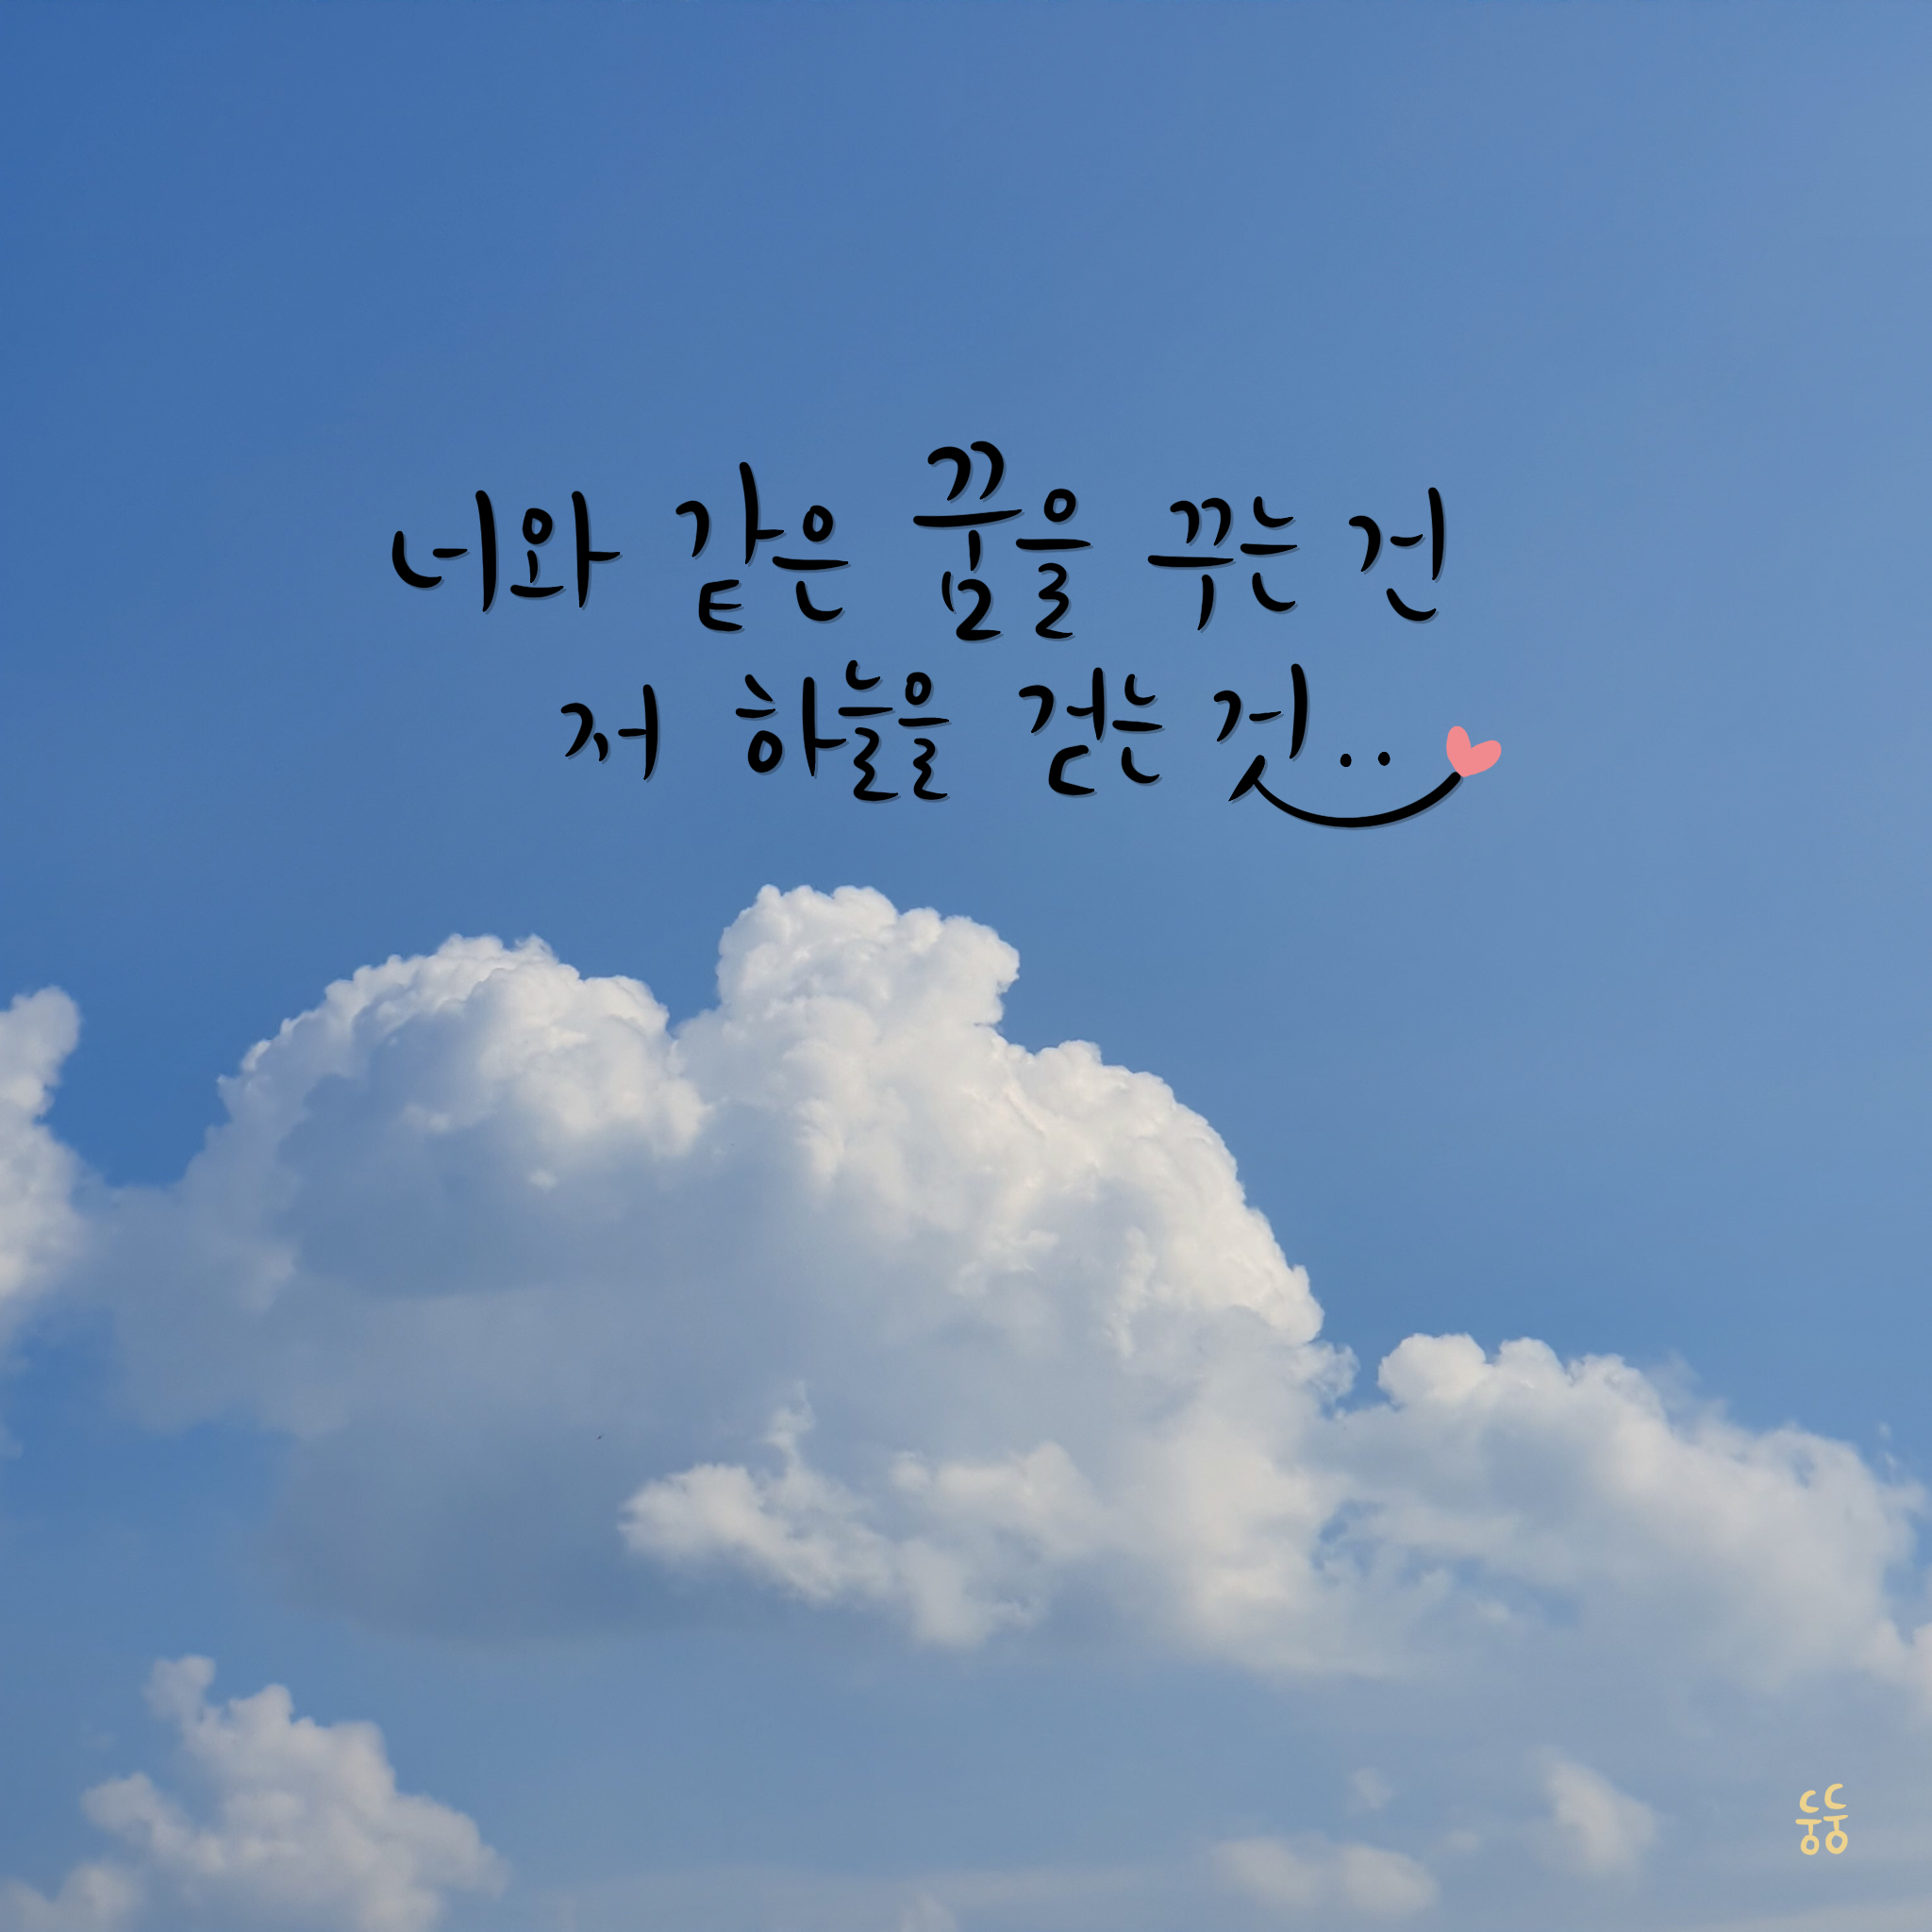 너와 같은 꿈을 꾸는 건
저 하늘을 걷는 것..
둥둥